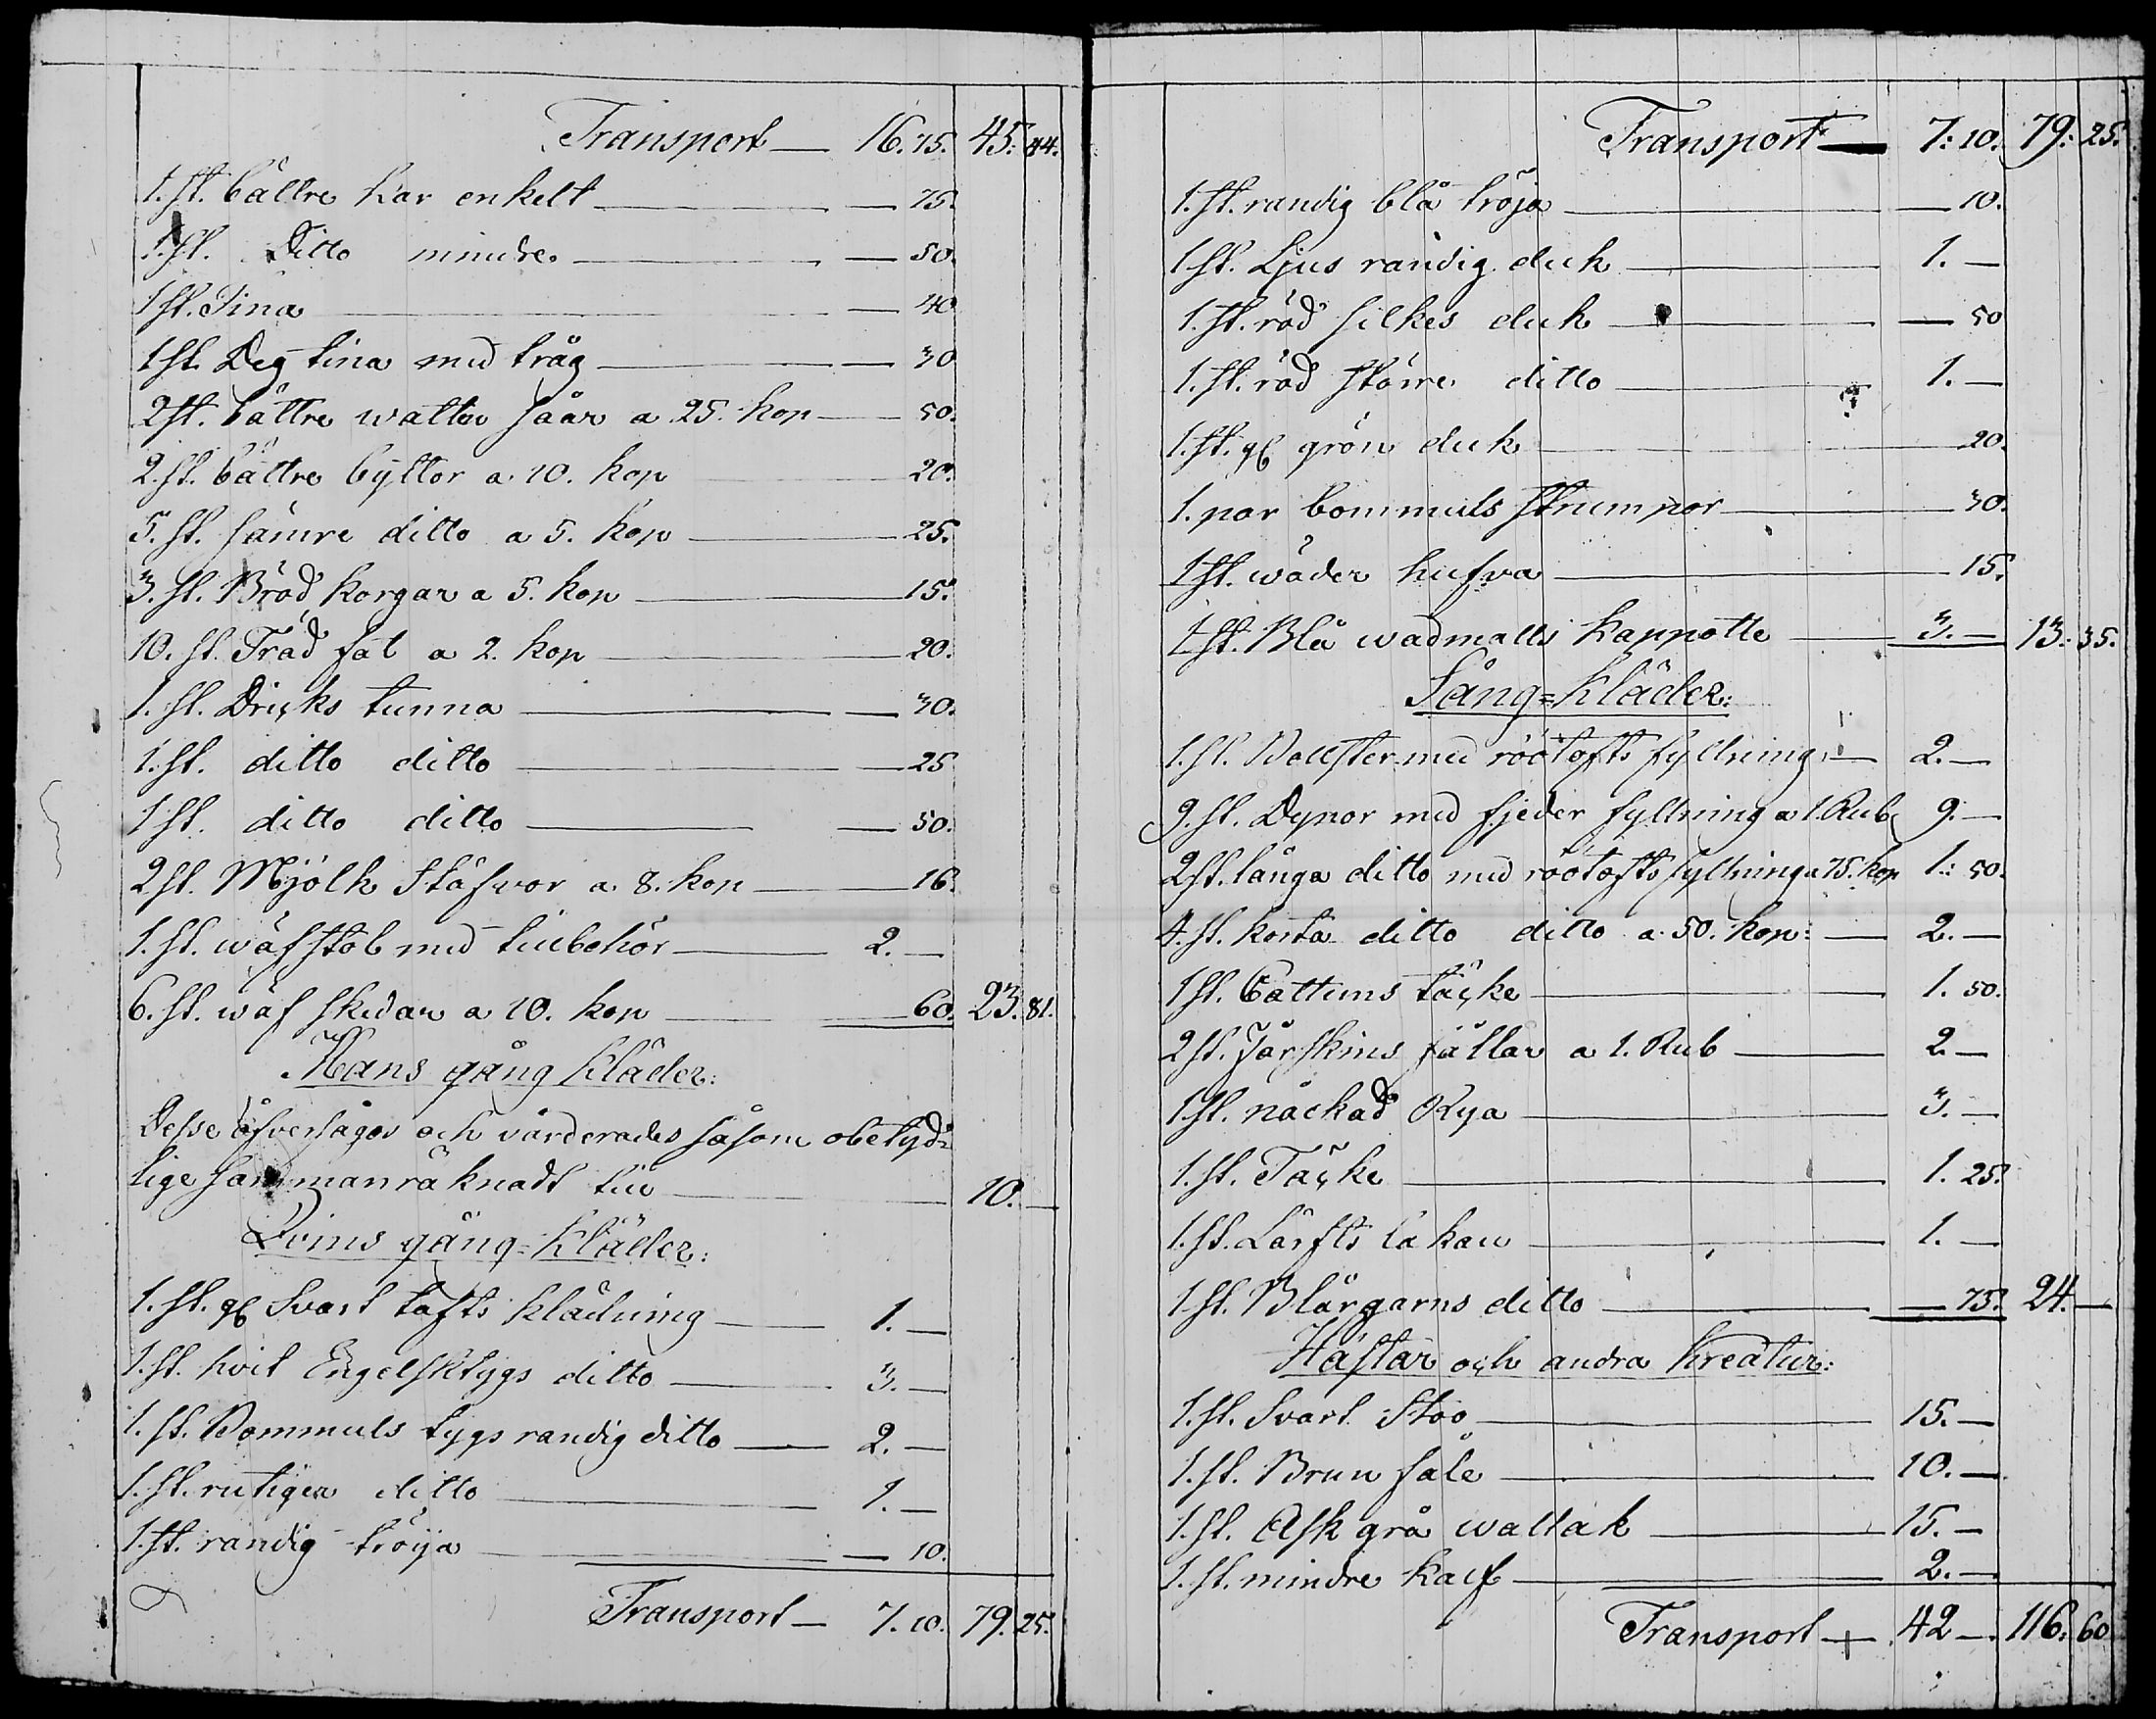 Transport — 16. 75. 45: 44.
1. st. bättre Kar enkelt — 75.
1. st. Ditto mindre — 50.
1 st. Tina — 40
1 st. Deg tina med tråg — 30
2 st. bättre watten såar a 25. kop — 50.
2. st. bättre byttor a 10. kop — 20.
5. st. sämre ditto a 5. kop — 25.
3. st. Bröd korgar a 5. kop — 15.
10. st. Träd fat a 2. kop — 20.
1. st. Dricks tunna — 30.
1. st. ditto ditto — 25
1 st. ditto ditto — 50.
2 st. Mjölk Stäfwor a 8. kop — 16.
1. st. wäfstol med tillbehör — 2. —
6. st. wäf skedar a 10. kop — 60. 23. 81.
Mans gång Kläder:
Desse öfversågos och värderades såsom obetyd=
lige sammanräknadt till — 10. —
Qvins gång=Kläder:
1. st. gl Svart tafts klädning — 1. —
1. st. hvit Engelsktygs ditto — 3. —
1. st. Bommuls tygs randig ditto — 2. —
1. st. rutigen ditto — 1. —
1. st. randig tröija — 10.
Transport — 7. 10. 79. 25.
Transport — 7: 10. 79: 25.
1. st. randig blå tröja — 10.
1 st. Ljus randig duk — 1. —
1. st. röd silkes duk — 50
1. st. röd större ditto — 1. —
1. st. gl grön duk — 20.
1. par bommuls strumpor — 30.
1 st. wäder hufva — 15.
1 st. Blå wadmalls Kappotte — 3. — 13: 35.
Säng=Kläder:
1. st. Bollster med röötofts fyllning — 2. —
9. st. Dynor med fjeder fyllning a 1. Rub 9. —
2 st. långa ditto med röötofts fyllning a 75. kop 1: 50.
4. st. korta ditto ditto a 50. kop: — 2. —
1 st. Cattuns täcke — 1. 50.
2 st. Fårskins fällar a 1. Rub — 2 —
1 st. nackad Rya — 3. —
1. st. Täcke — 1. 25.
1. st. Lärfts lakan — 1. —
1 st. Blårgarns ditto — 75. 24. —
Hästar och andra Kreatur:
1. st. Svart Stoo — 15. —
1. st. Brun fåle — 10. —
1. st. Ask grå wallak — 15. —
1. st. mindre kalf — 2. —
Transport — 42 — 116. 60